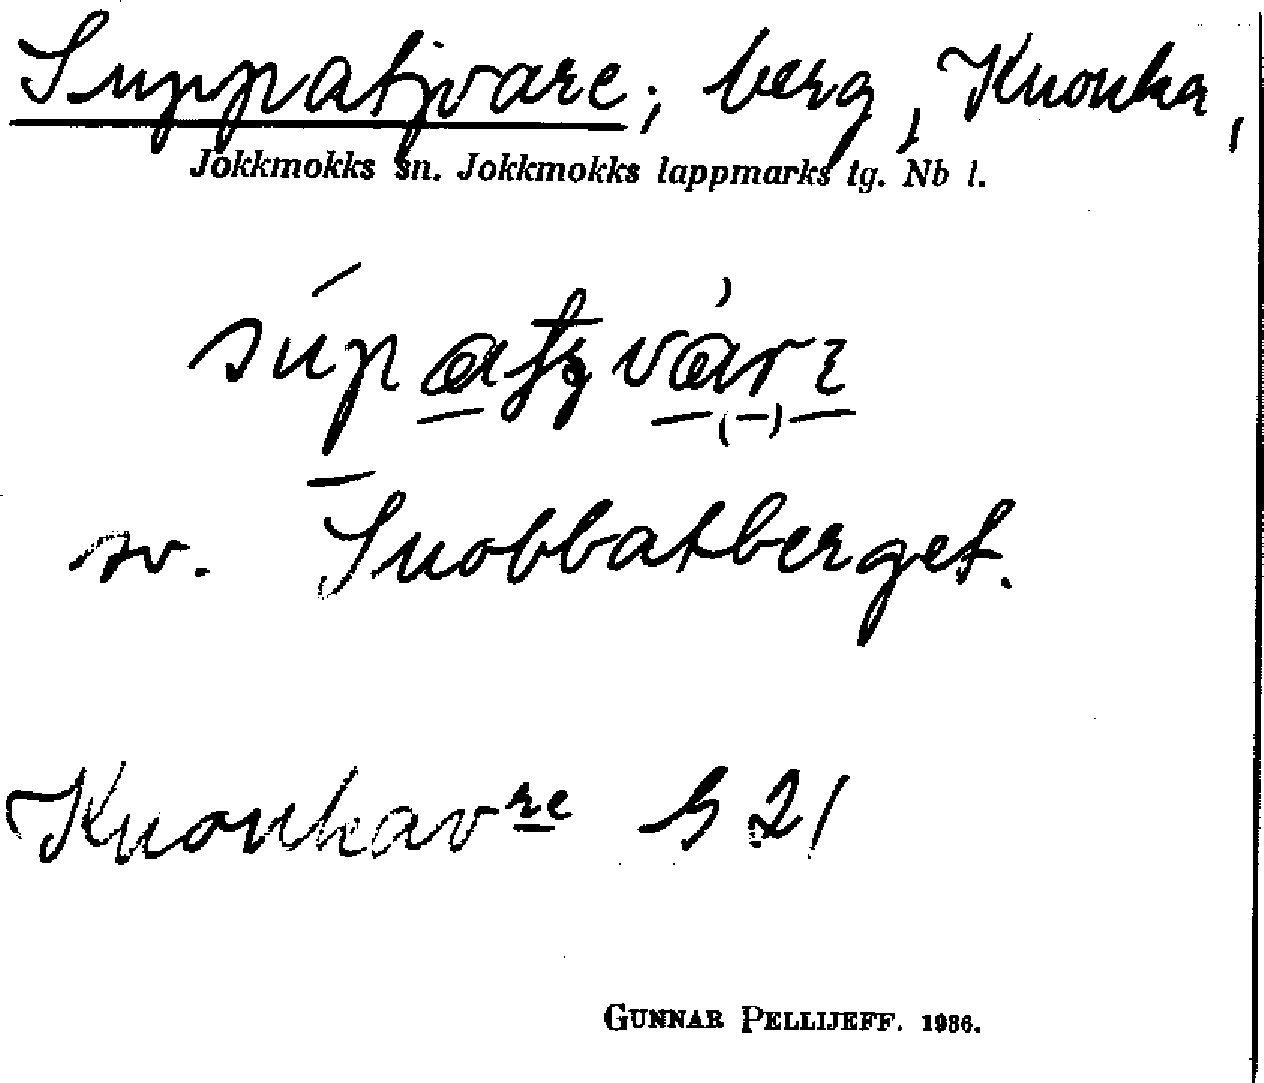 Suppatjvare; berg, Knonka,
Jokkmokks sn. Jokkmokks lappmarks tg. Nb l.
sv. Snobbatberget.
Knonkavre h 21
GUNNAR PELLIJEFF. 1936.